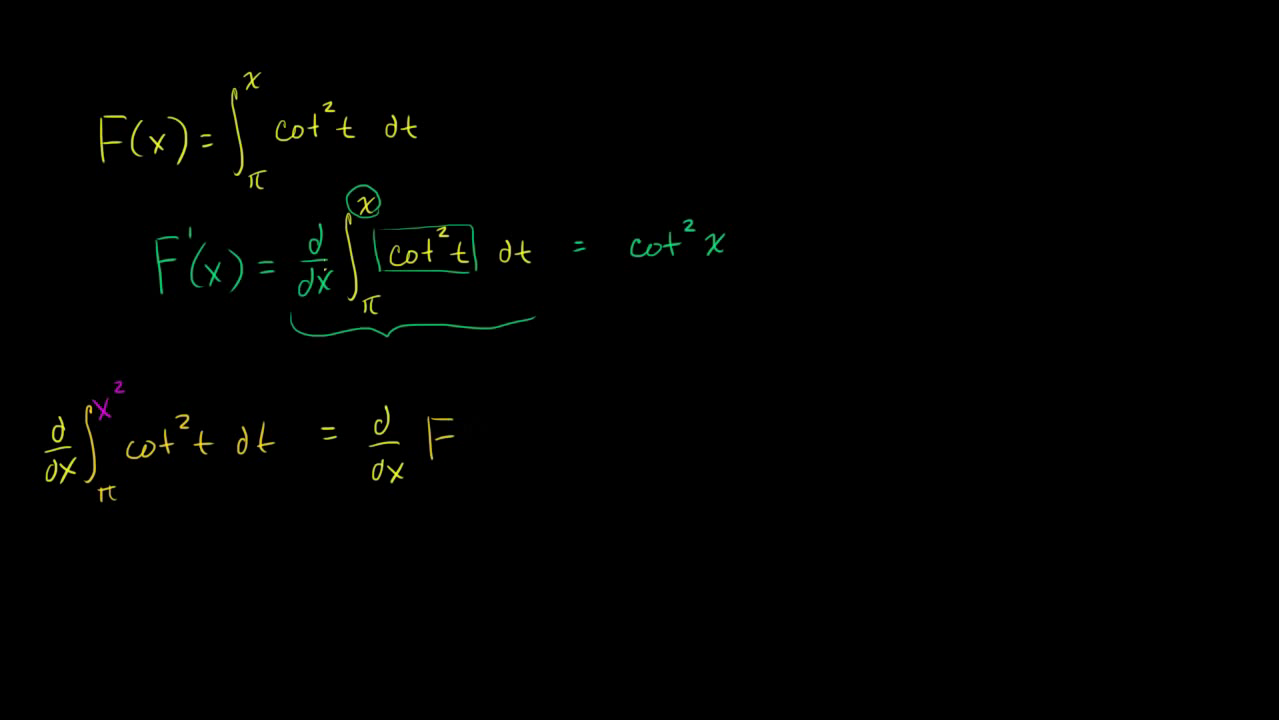 F(x) = ∫_π^x cot² t dt
F'(x) = d/dx ∫_π^x cot² t dt = cot² x
d/dx ∫_π^x² cot² t dt = d/dx F